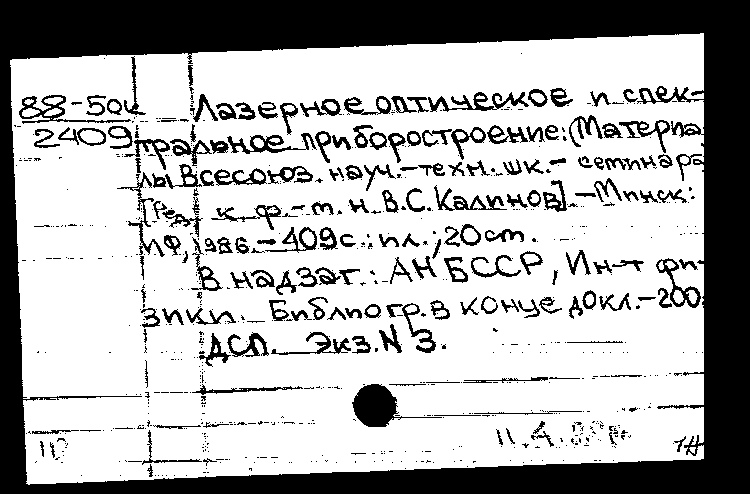 88-50к Лазерное оптическое и спек-
2409 тральное приборостроение: (Материа
лы Всесоюз. науч.-техн. шк.- семинара
[Ред. к. ф.-м. н. В.С. Калинов].-Минск:
ИФ, 1986.-409с.: ил.; 20 см.
В надзаг.: АН БССР, Ин-т фи-
зики. Библиогр. в конце докл.-200
ДСП. Экз. N 3.
11.4.